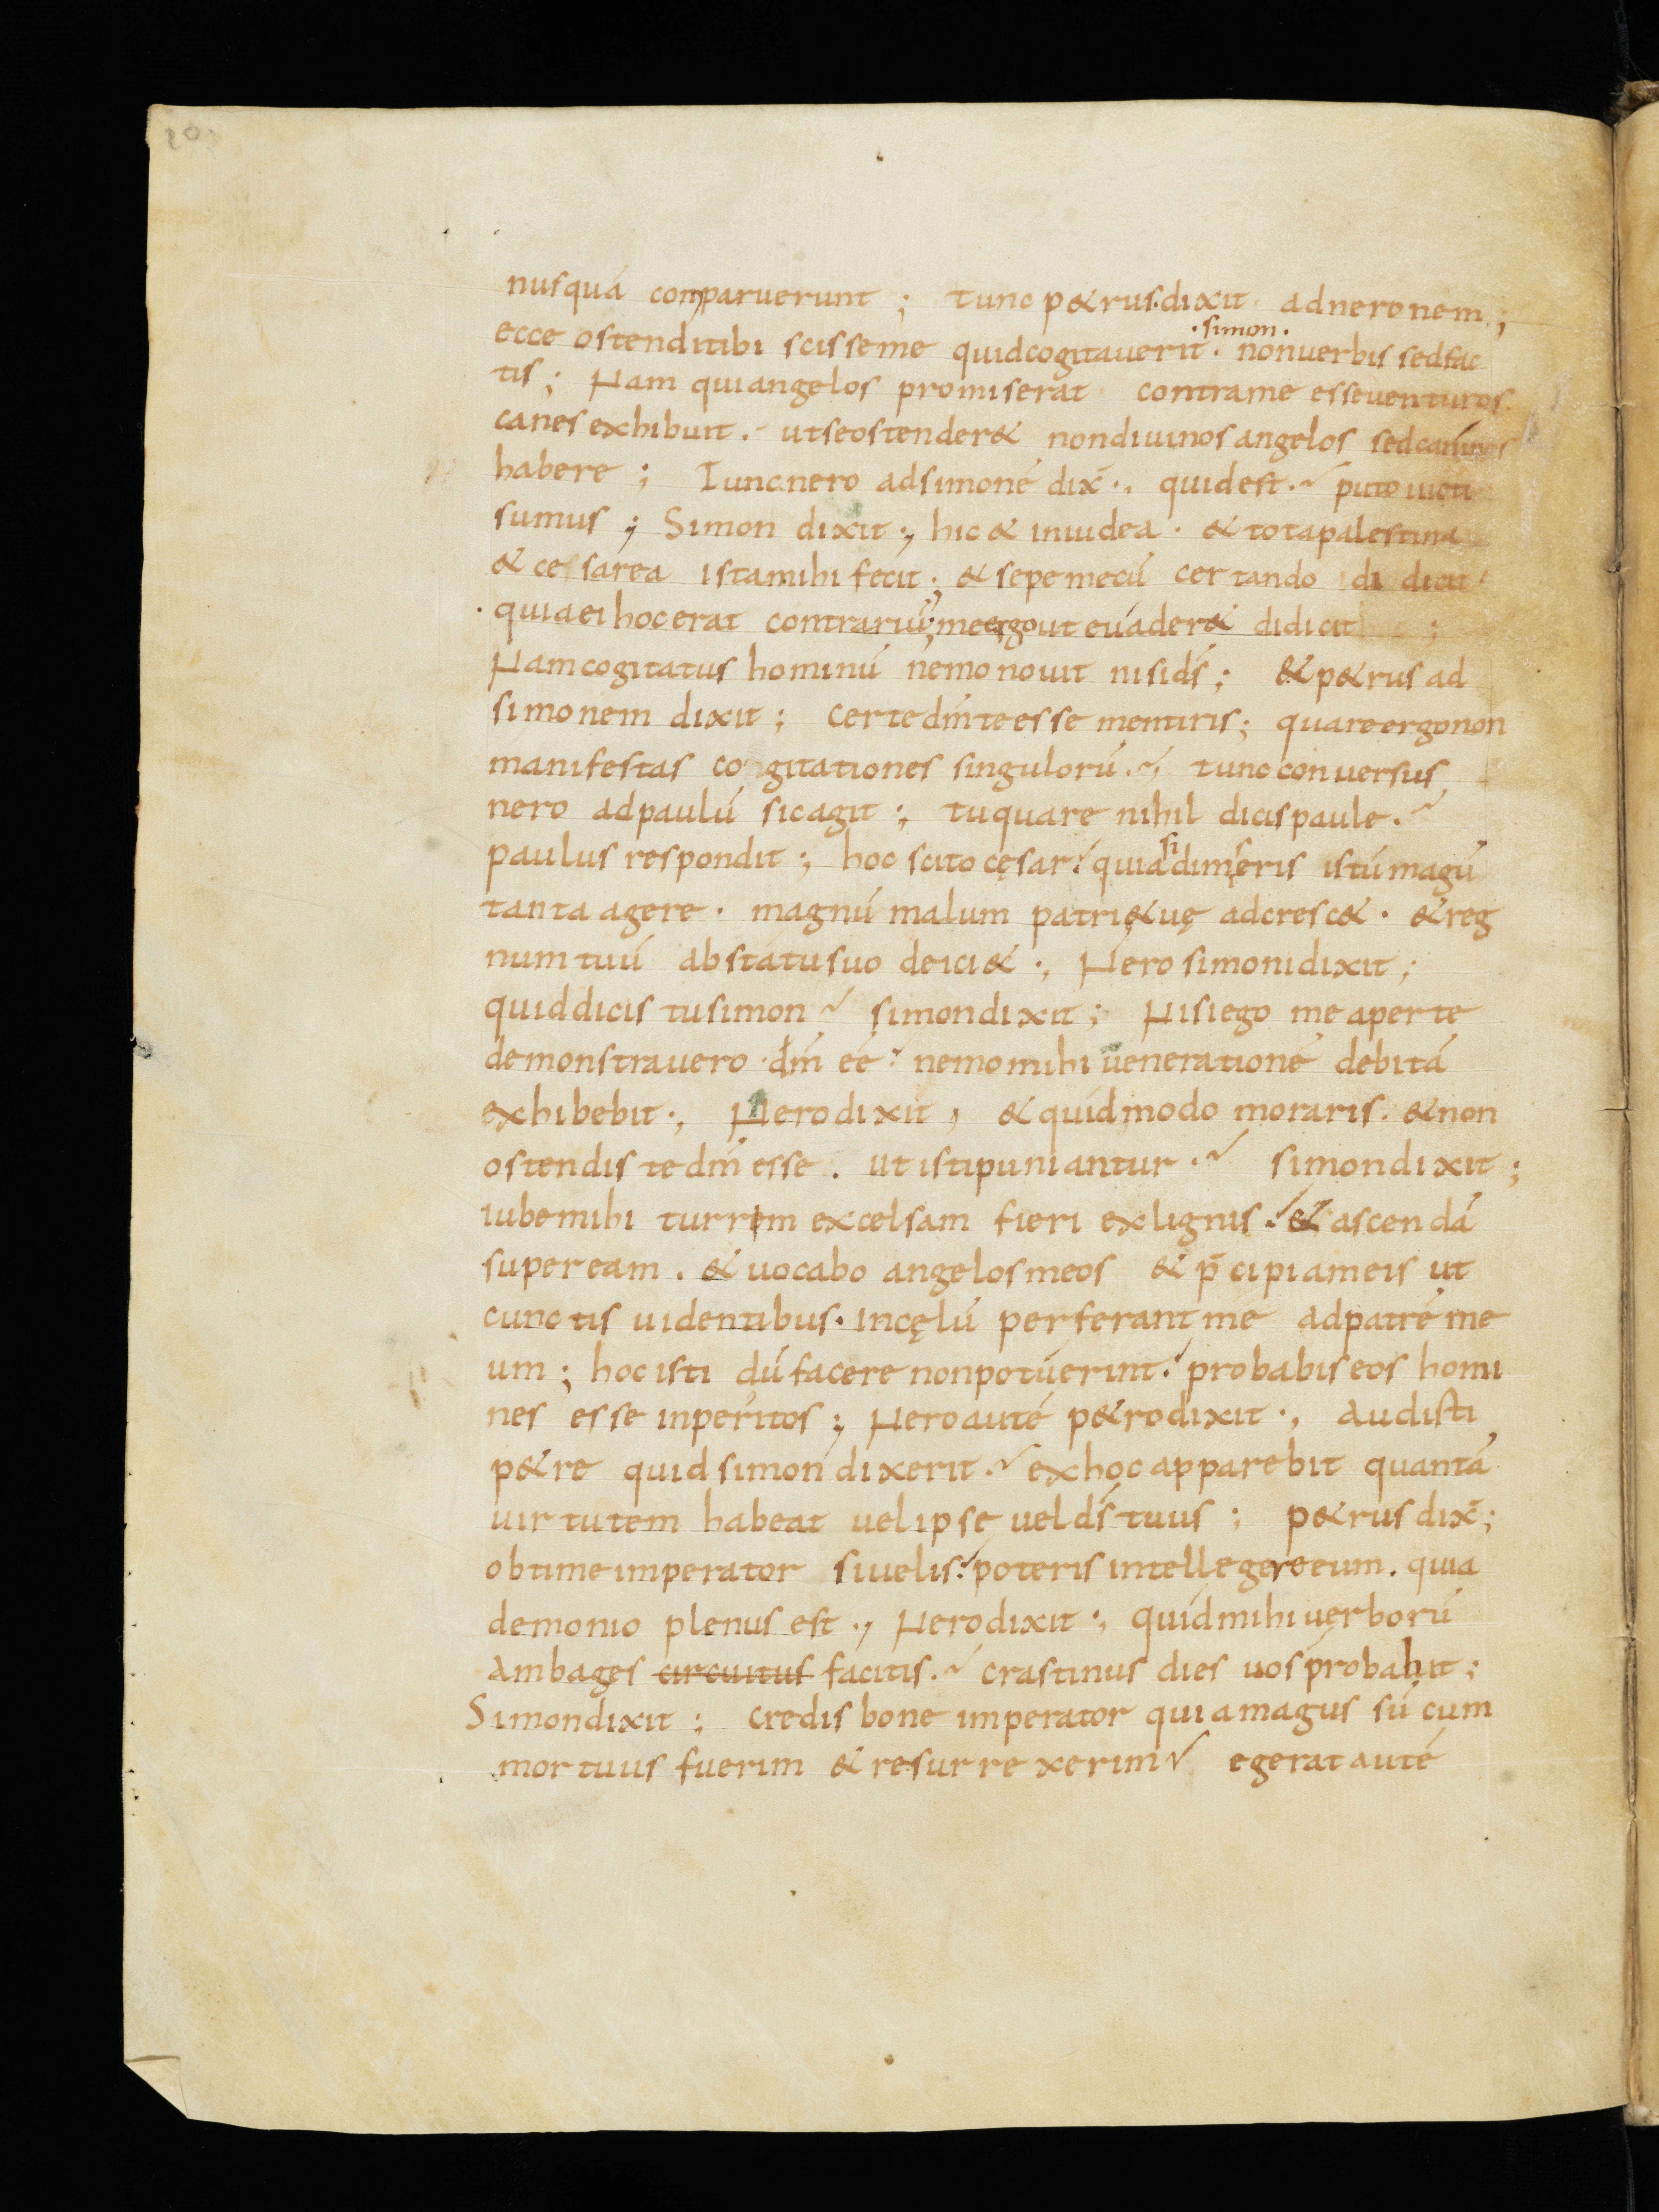 20
nusquā conparuerunt ; tunc p&rus·dixit adneronem ;
·simon·
ecce ostenditibi scisseme quidcogitauerit · nonuerbis sedfac
tis ; Nam quiangelos promiserat contrame esseuenturos
canes exhibuit . utseostender& nondiuinos angelos sedcaninos
habere ; Tuncnero adsimonē dix̄ ., quidest .~ puto uicti
sumus ; Simon dixit ., hic & iniudea · & totapalestina
& cesarea istamihi fecit ; & sepe mecū certando didicit
· quiaei hocerat contrariū ; meergo ut euader& didicit ;
Nam cogitatus hominū nemo nouit nisid̄s ; & p&rus ad
simonem dixit ; certed̄m te esse mentiris ; quareergonon
manifestas cogitationes singulorū .~ tunc conuersus
nero adpaulū sicagit ; tuquare nihil dicispaule .~
si
paulus respondit ; hoc scito cęsar : quia dimseris istū magū
tanta agere · magnū malum patrię&uę adcresc& · & reg
num tuū abstatusuo deici& ., Nero simonidixit ;
quiddicis tusimon ~ simondixit ; Nisiego me aperte
demonstrauero · d̄m eē : nemomihi uenerationē debitā
exhibebit ., Nerodixit , & quidmodo moraris . & non
ostendis te d̄m esse . ut istipuniantur .~ simondixit ;
iubemihi turrem excelsam fieri exlignis : & ascendā
super eam . & uocabo angelosmeos & p̄cipiameis ut
cunctis uidentibus · incęlū perferantme adpatrē me
um ; hoc isti dū facere nonpotuerint : probabis eos homi
nes esse inperitos ; Neroautē p&rodixit ., Audisti
p&re quid simon dixerit .~ exhoc apparebit quantā
uirtutem habeat uel ipse ueld̄s tuus ; p&rus dix̄ ;
obtimeimperator siuelis : poteris intellegereeum . quia
demonio plenus est ., Nerodixit ., quidmihi uerborū
Ambages circuitus facitis .~ crastinus dies uosprobabit ;
Simondixit ; credis bone imperator quiamagus sū cum
mortuus fuerim & resurrexerim ~ egerat autē